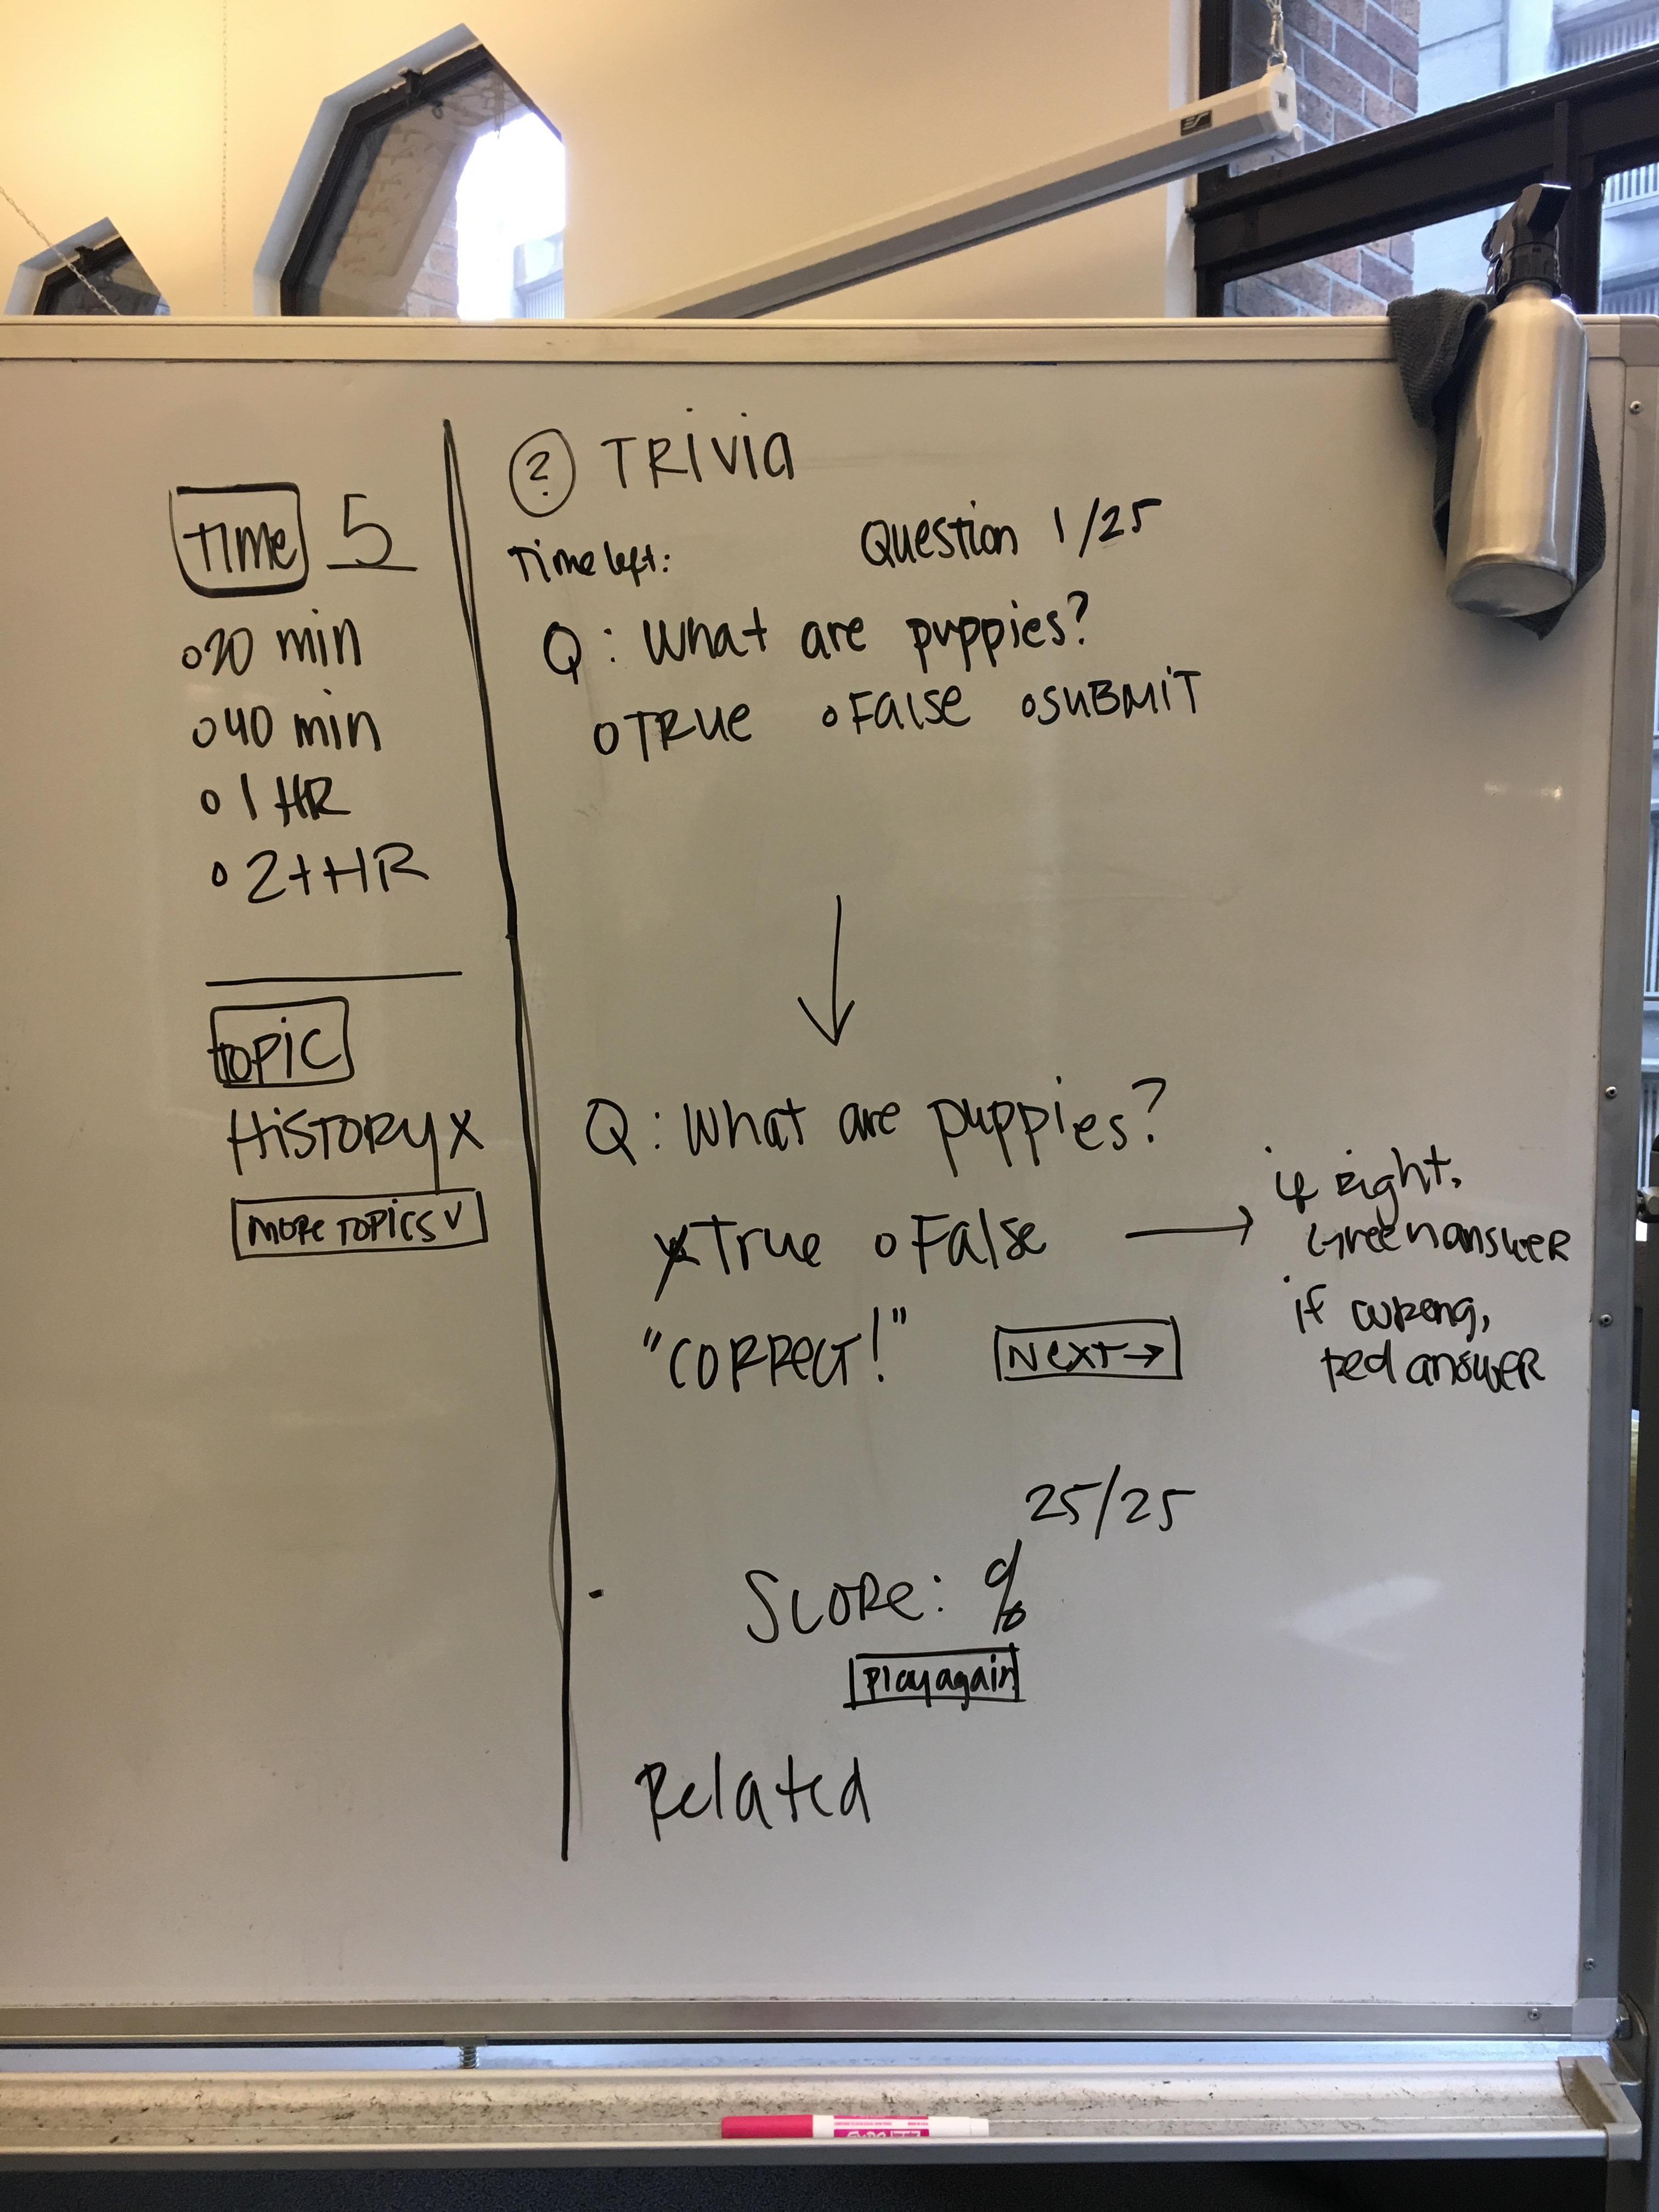 TIME 5
20 min
40 min
1 HR
2+HR
TOPIC
HISTORY X
MORE TOPICS V
? TRIVIA
Time left: Question 1/25
Q: What are puppies?
TRUE False SUBMIT
Q: What are puppies?
True False
"CORRECT!" NEXT →
if right,
Green answer
if wrong,
red answer
25/25
SCORE: %
Play again
Related